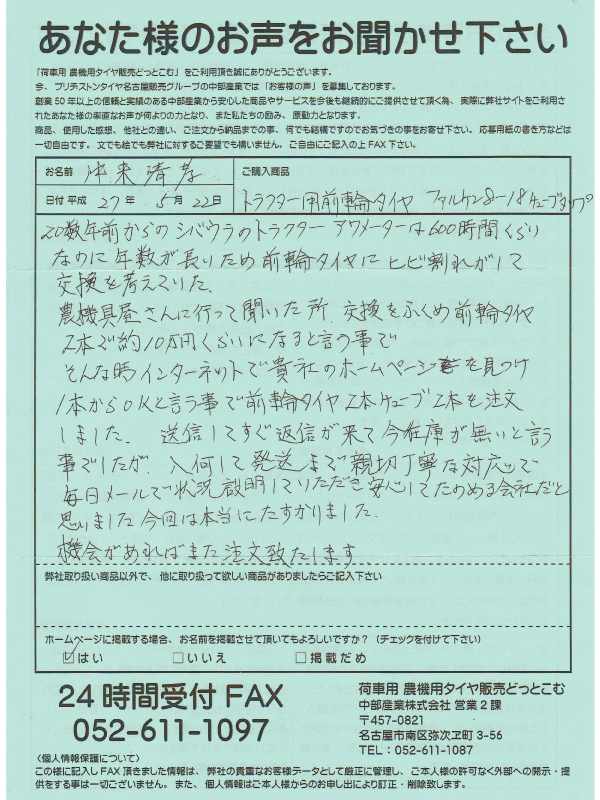 あなた様のお声をお聞かせ下さい
「荷車用 農機用タイヤ販売どっとこむ」をご利用頂き誠にありがとうございます。
今、ブリヂストンタイヤ名古屋販売グループの中部産業では「お客様の声」を募集しております。
創業50年以上の信頼と実績のある中部産業から安心した商品やサービスを今後も継続的にご提供させて頂く為、実際に弊社サイトをご利用されたあなた様の率直なお声が何よりの力となり、また私たちの励み、原動力となります。
商品、使用した感想、他社との違い、ご注文から納品までの事、何でも結構ですのでお気づきの事をお寄せ下さい。応募用紙の書き方などは一切自由です。文でも絵でも弊社に対するご要望でも構いません。ご自由にご記入の上FAX下さい。
お名前 沖来 清孝
ご購入商品
日付 平成 27年 5月 22日
トラクター用前輪タイヤ ファルケン8-18チューブタイプ
20数年前からのシバウラのトラクター アワメーターは600時間くらい
なのに年数が長いため前輪タイヤにヒビ割れがして
交換を考えていた。
農機具屋さんに行って聞いた所 交換をふくめ前輪タイヤ
2本で約10万円くらいになると言う事で
そんな時インターネットで貴社のホームページを見つけ
1本からOKと言う事で前輪タイヤ2本チューブ2本を注文
しました。 送信してすぐ返信が来て今在庫が無いと言う
事でしたが 入何して発送まで親切丁寧な対応で
毎日メールで状況説明していただき安心してたのめる会社だと
思いました今回は本当にたすかりました。
機会があればまた注文致します
弊社取り扱い商品以外で、他に取り扱って欲しい商品がありましたらご記入下さい
ホームページに掲載する場合、お名前を掲載させて頂いてもよろしいですか？（チェックを付けて下さい）
☑はい □いいえ □掲載だめ
24時間受付FAX
052-611-1097
荷車用 農機用タイヤ販売どっとこむ
中部産業株式会社 営業2課
〒457-0821
名古屋市南区弥次ヱ町3-56
TEL：052-611-1087
〈個人情報保護について〉
この様に記入しFAX頂きました情報は、弊社の貴重なお客様データとして厳正に管理し、ご本人様の許可なく外部への開示・提供をする事は一切ございません。また、個人情報はご本人様からのお申し出により訂正・削除致します。